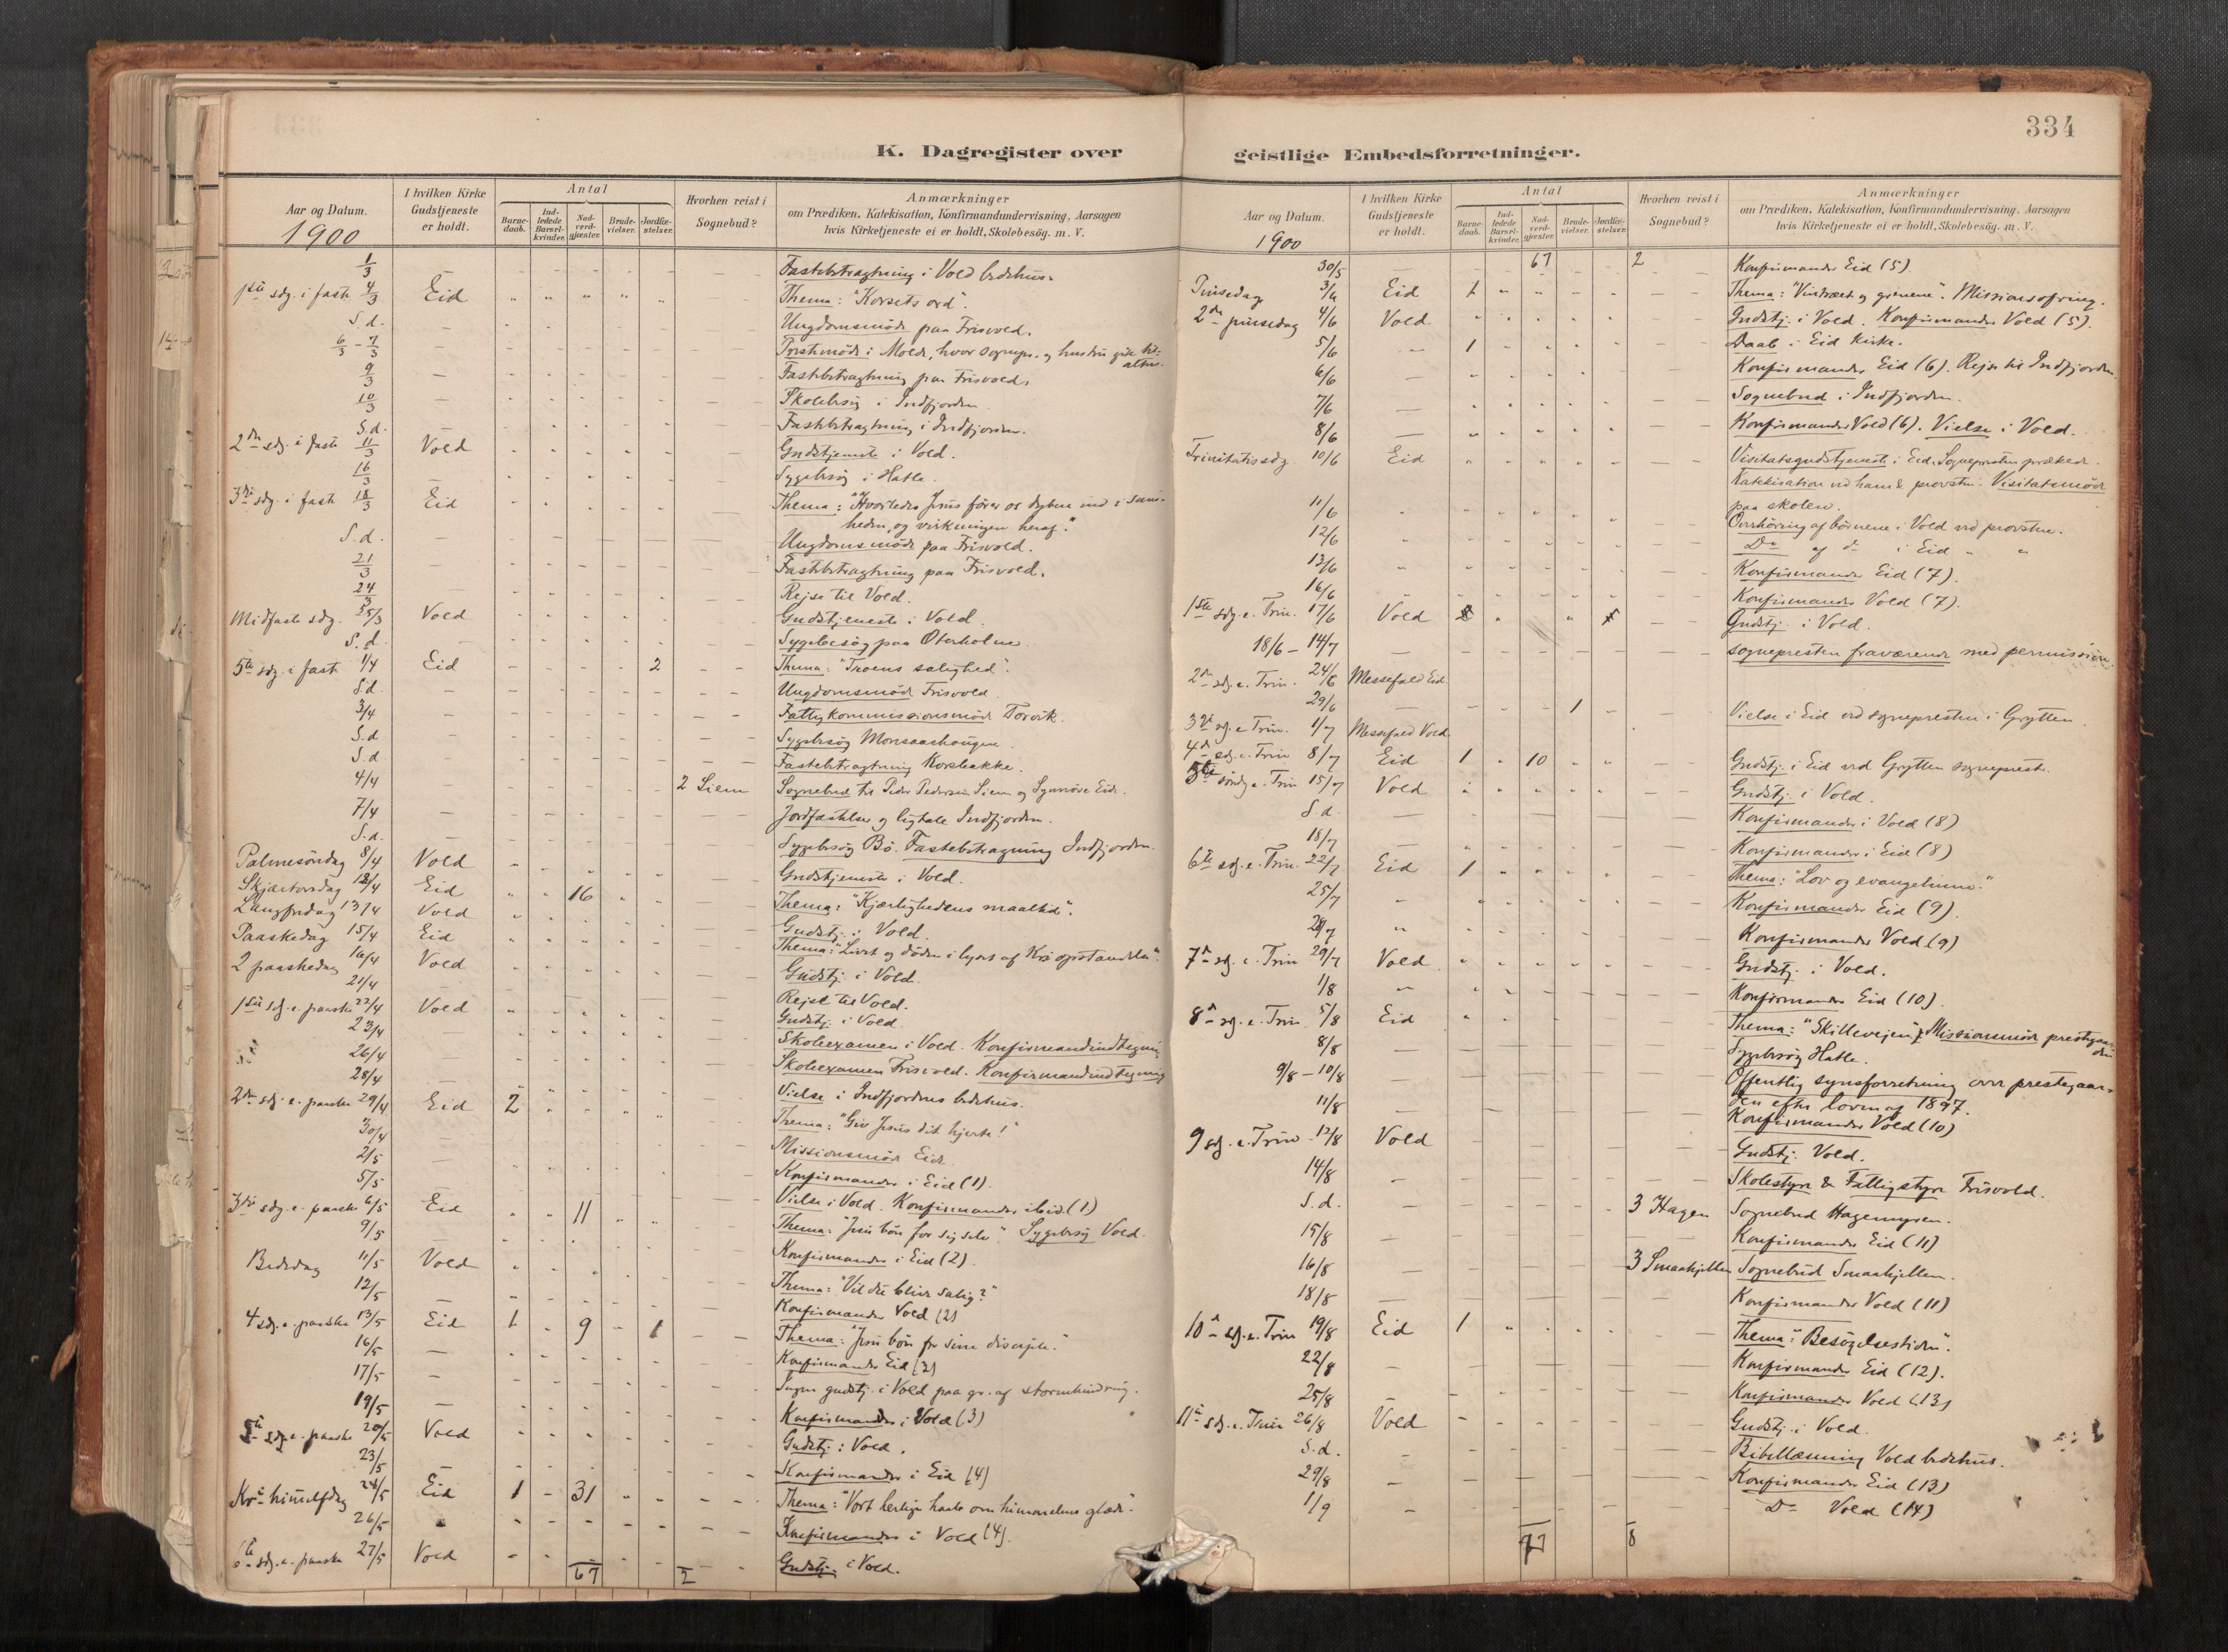 334
K. Dagregister over geistlige Embedsforretninger.
Aar og Datum. I hvilken Kirke Gudstjeneste er holdt. Antal Barnedaab. Indledede Barselkvinder. Nadverdgjæster. Brudevielser. Jordfæstelser. Hvorhen reist i Sognebud? Anmærkninger om Prædiken, Katekisation, Konfirmandundervisning, Aarsagen hvis Kirketjeneste ei er holdt, Skolebesög. m. V.
1900
1/3 Fastebetragtning i Vold bedehus.
1ste sdg. i faste 4/3 Eid Thema: "Korsets ord".
S.d. Ungdomsmöde paa Frisvold.
6/3 - 7/3 i Molde, hvor sognepr. og hustru gik til alters.
9/3 Fastebetragtning paa Frisvold.
10/3 Skolebesög i Indfjorden
S.d. Fastebetragtning i Indfjorden.
2den sdg. i faste 11/3 Vold Gudstjeneste i Vold.
16/3 Sygebesög i Hatle.
3die sdg. i faste 18/3 Eid Thema: "Hvorledes Jesus förer os dybere ind i sandheden, og virkningen heraf."
S.d. Ungdomsmöde paa Frisvold.
21/3 Fastebetragtning paa Frisvold.
24/3 Rejse til Vold.
Midfaste sdg. 25/3 Vold Gudstjeneste i Vold.
S.d. Sygebesög paa Oterholm
5te sdg. i faste 1/4 Eid 2 Thema: "Troens salighed".
S.d. Ungdomsmöde Frisvold
3/4 Fattigkommissionsmöde Torvik.
S.d Sygebesög Monsaashougen.
S.d. Fastebetragtning Korsbakke.
4/4 2 Siem Sognebud til Peder Pedersen Siem og Synnöve Eide.
7/4 Jordfæstelse og ligtale Indfjorden.
S.d. Sygebesög Bö. Fastebetragning Indfjorden.
Palmesöndag 8/4 Vold Gudstjeneste i Vold.
Skjærtorsdag 12/4 Eid 16 Thema: "Kjærlighedens maaltid".
Langfredag 13/4 Vold Gudstj. i Vold.
Paaskedag 15/4 Eid Thema: "Livet og döden i lyset af Kri opstandelse".
2 paaskedag 16/4 Vold Gudstj. i Vold.
21/4 Rejse til Vold.
1ste sdg. e. paaske 22/4 Vold Gudstj. i Vold
23/4 Skoleexamen i Vold. Konfirmandindtegning
26/4 Skoleexamen Frisvold. Konfirmandindtegning
28/4 Vielse i Indfjordens bedehus.
2den sdg. e. paaske 29/4 Eid 2 Thema: "Giv Jesus dit hjerte!"
30/4 Missionsmöde Eide.
2/5 Konfirmander i Eid (1).
5/5 Vielse i Vold. Konfirmander ibid. (1)
3die sdg. e. paaske 6/5 Eid 11 Thema: "Jesu bön for sig selv." Sygebesög Vold.
9/5 Konfirmander i Eid (2).
Bededag 11/5 Vold Thema: "Vil du blive salig?"
12/5 Konfirmander Vold (2)
4 sdg. e. paaske 13/5 Eid 1 9 1 Thema: "Jesu bön for sine disciple."
16/5 Konfirmander Eid (3)
17/5 Ingen gudstj. i Vold paa gr. af stormhindring.
19/5 Konfirmander i Vold (3)
5te sdg. e. paaske 20/5 Vold Gudstj. i Vold.
23/5 Konfirmander i Eid (4)
Kri himelfdag 24/5 Eid 1 31 Thema: "Vort herlige haab om himmelens glæde".
26/5 Konfirmander i Vold (4).
6te sdg. e. paaske 27/5 Vold Gudstj. i Vold.
67 2
Aar og Datum. I hvilken Kirke Gudstjeneste er holdt. Antal Barnedaab. Indledede Barselkvinder. Nadverdgjæster. Brudevielser. Jordfæstelser. Hvorhen reist i Sognebud? Anmærkninger om Prædiken, Katekisation, Konfirmandundervisning, Aarsagen hvis Kirketjeneste ei er holdt, Skolebesög. m. V.
1900
30/5 67 2 Konfirmander Eid (5).
Pinsedag 3/6 Eid 1 Thema: "Vintræet og grenene". Missionsofring.
2den pinsedag 4/6 Vold Gudstj. i Vold. Konfirmander Vold (5).
5/6 1 Daab i Eid kirke.
6/6 Konfirmander Eid (6). Rejse til Indfjorden.
7/6 Sognebud i Indfjorden.
8/6 Konfirmander Vold (6). Vielse i Vold.
Trinitatissdg 10/6 Eid Visitatsgudstjeneste i Eid. Sognepresten prækede.
Katekisation ved ham & provsten. Visitatsmöde paa skolen.
11/6 Overhöring af börnene i Vold ved provsten.
12/6 Do af do i Eid " "
13/6 Konfirmander Eid (7).
16/6 Konfirmander Vold (7).
1ste sdg. e. Trin. 17/6 Vold Gudstj. i Vold.
18/6 - 14/7 sognepresten fraværende med permission.
2den sdg. e. Trin. 24/6 Messefald Eid.
29/6 1 Vielse i Eid ved sognepresten i Grytten.
3die sdg. e. Trin. 1/7 Messefald Vold.
4de sdg. e. Trin 8/7 Eid 1 10 Gudstj. i Eid ved Grytten sogneprest.
5te söndg e. Trin 15/7 Vold Gudstj. i Vold.
S.d. Konfirmander i Vold (8)
18/7 Konfirmander i Eid (8)
6te sdg. e. Trin. 22/7 Eid 1 Thema: "Lov og evangelium."
25/7 Konfirmander Eid (9).
28/7 Konfirmander Vold (9)
7de sdg. e. Trin 29/7 Vold Gudstj. i Vold.
1/8 Konfirmander Eid (10).
8de sdg. e. Trin. 5/8 Eid Thema: "Skillevejen". Missionsmöde prestegaarden
8/8 Sygebesög Hatle.
9/8 - 10/8 Offentlig synsforretning over prestegaarden efter loven af 1897.
11/8 Konfirmander Vold (10)
9 sdg. e. Trin. 12/8 Vold Gudstj. Vold.
14/8 Skolestyre & Fattigstyre Frisvold.
S.d. 3 Hagen Sognebud Hagemyren.
15/8 Konfirmander Eid (11)
16/8 3 Smaahjellen Sognebud Smaahjellen.
18/8 Konfirmander Vold (11)
10de sdg. e. Trin 19/8 Eid 1 Thema: "Besögelsestiden".
22/8 Konfirmander Eid (12).
25/8 Konfirmander Vold (13)
11te sdg. e. Trin 26/8 Vold Gudstj. i Vold.
S.d. Bibellæsning Vold bedehus.
29/8 Konfirmander Eid (13)
1/9 Do Vold (14)
77 8